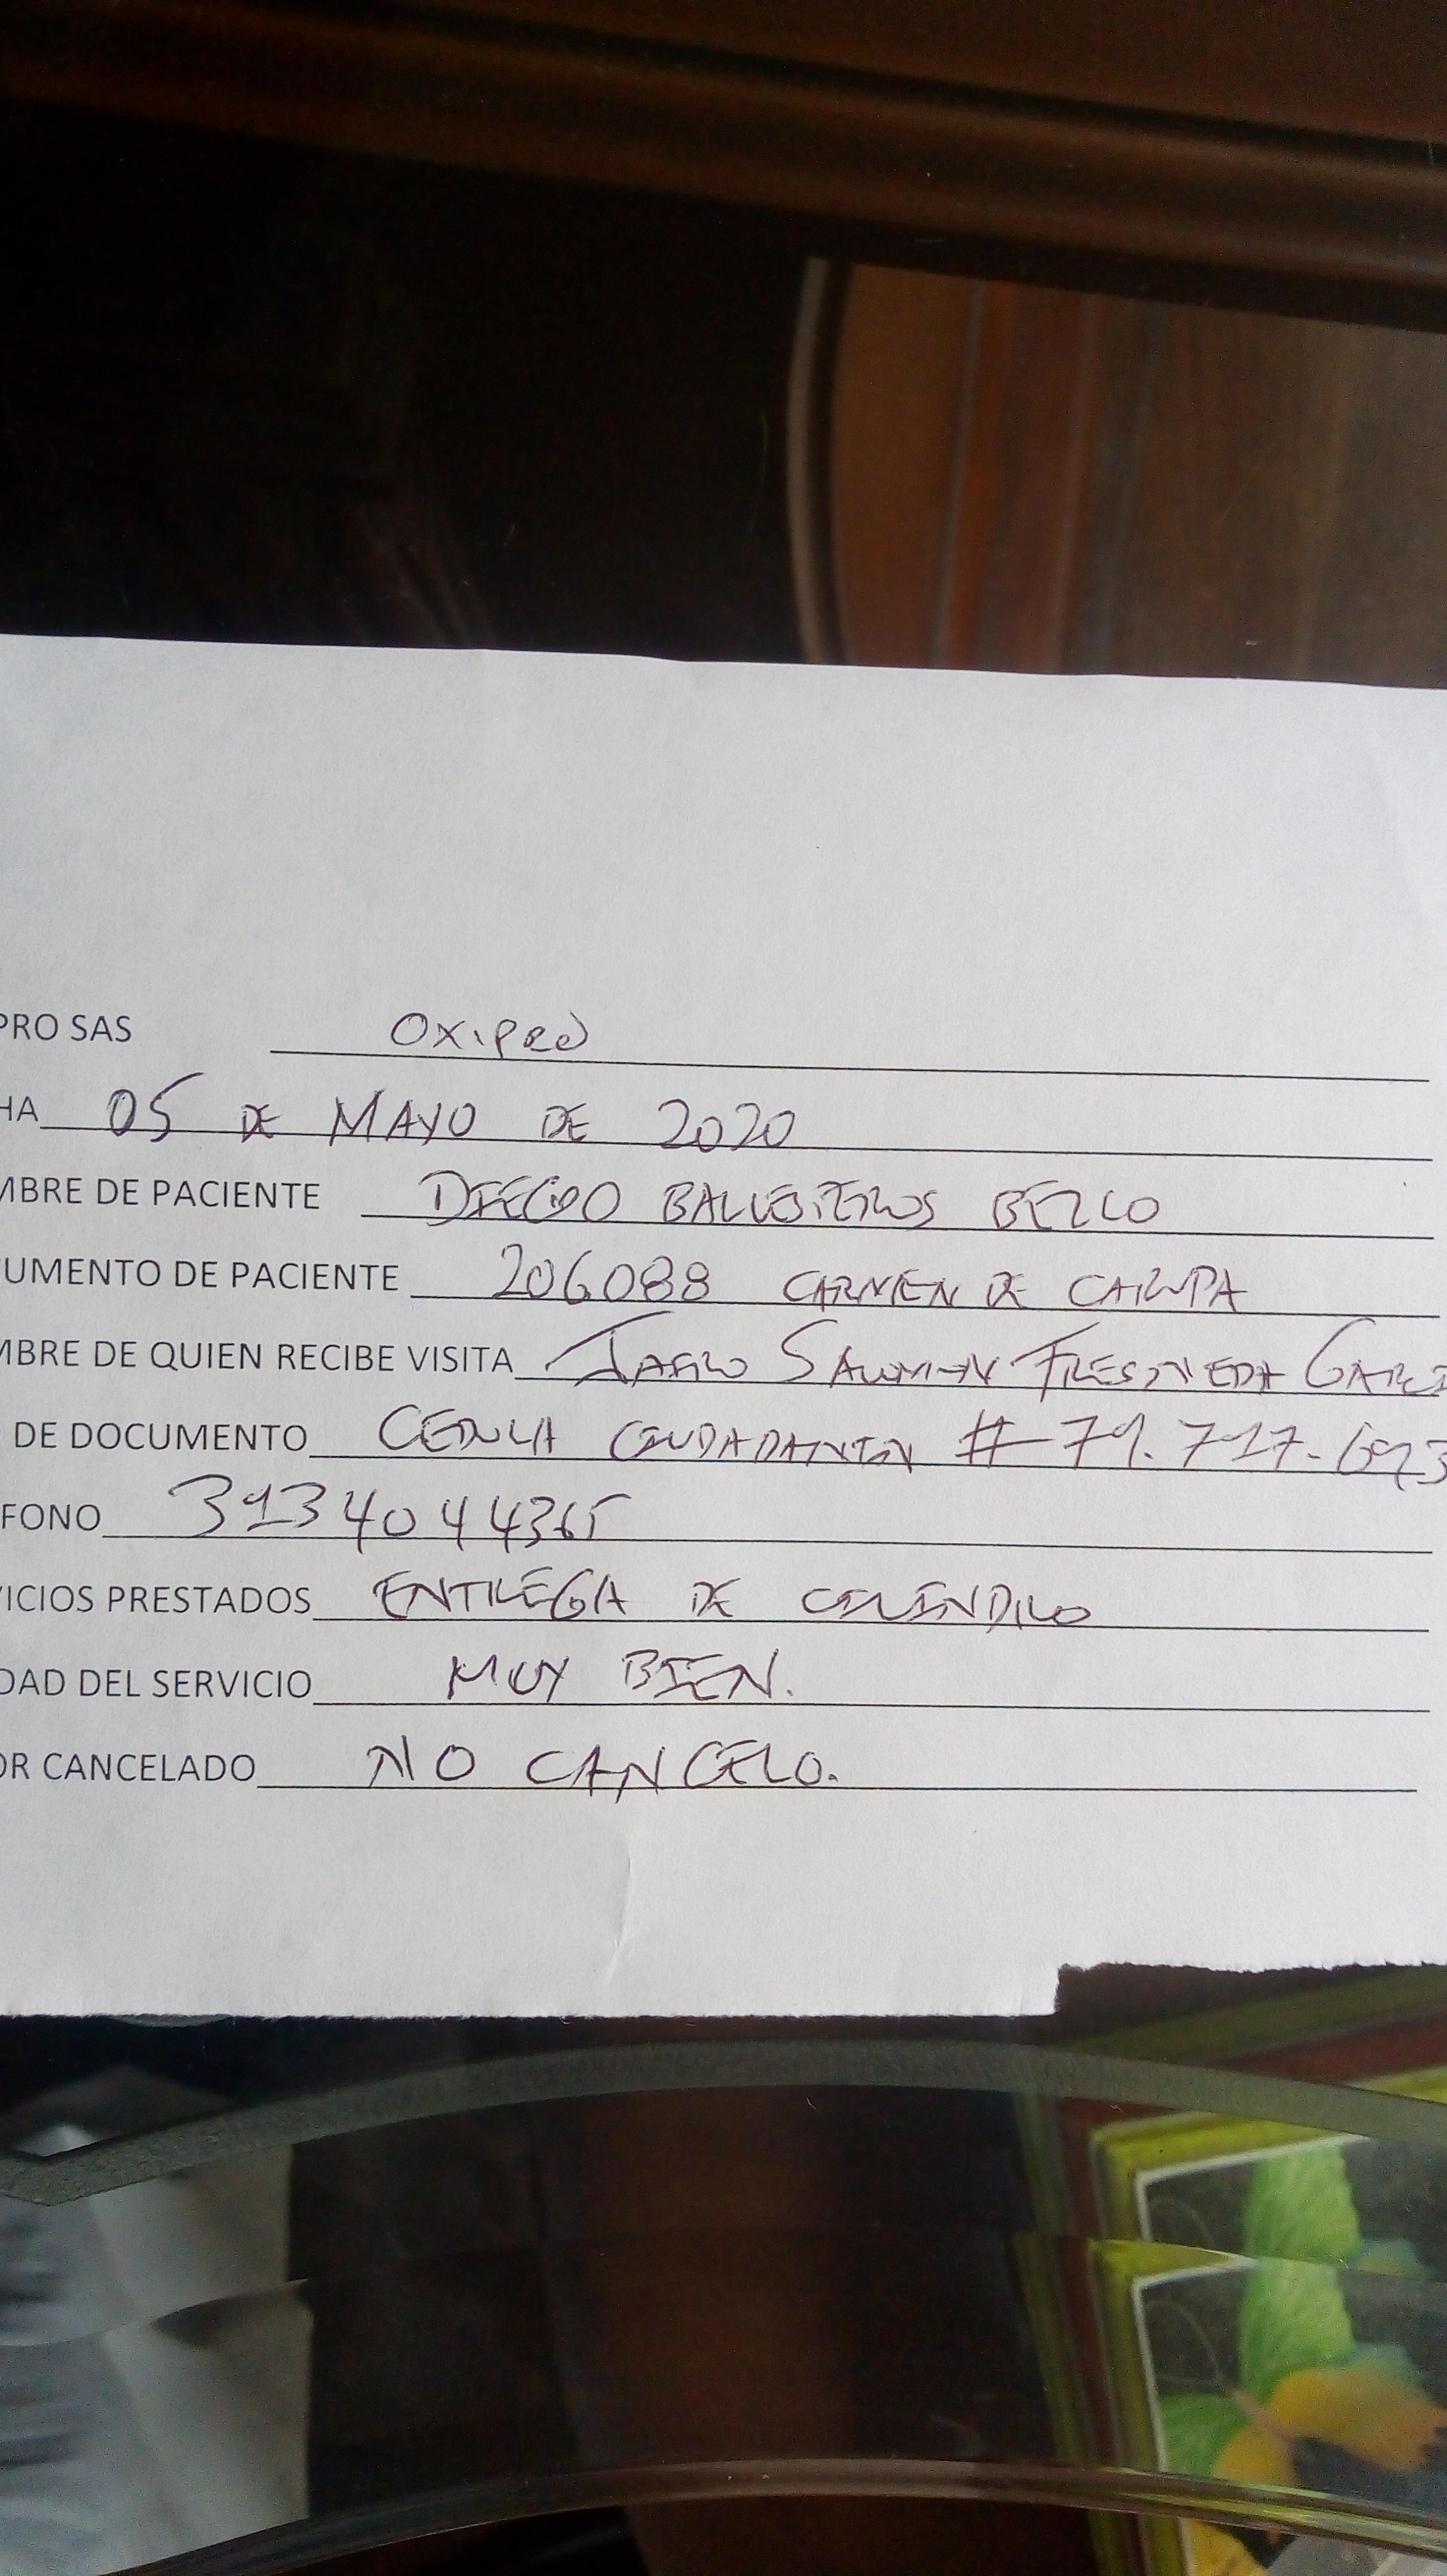 PRO SAS OXIPRO
HA 05 DE MAYO DE 2020
MBRE DE PACIENTE DIEGO BALLESTEROS BELLO
UMENTO DE PACIENTE 206088 CARMEN DE CARUPA
MBRE DE QUIEN RECIBE VISITA JAIRO SALOMON FRESNEDA GARCI
DE DOCUMENTO CEDULA CIUDADANIA # 79.717.693
FONO 3134044365
ICIOS PRESTADOS ENTREGA DE CILINDRO
DAD DEL SERVICIO MUY BIEN.
OR CANCELADO NO CANCELO.